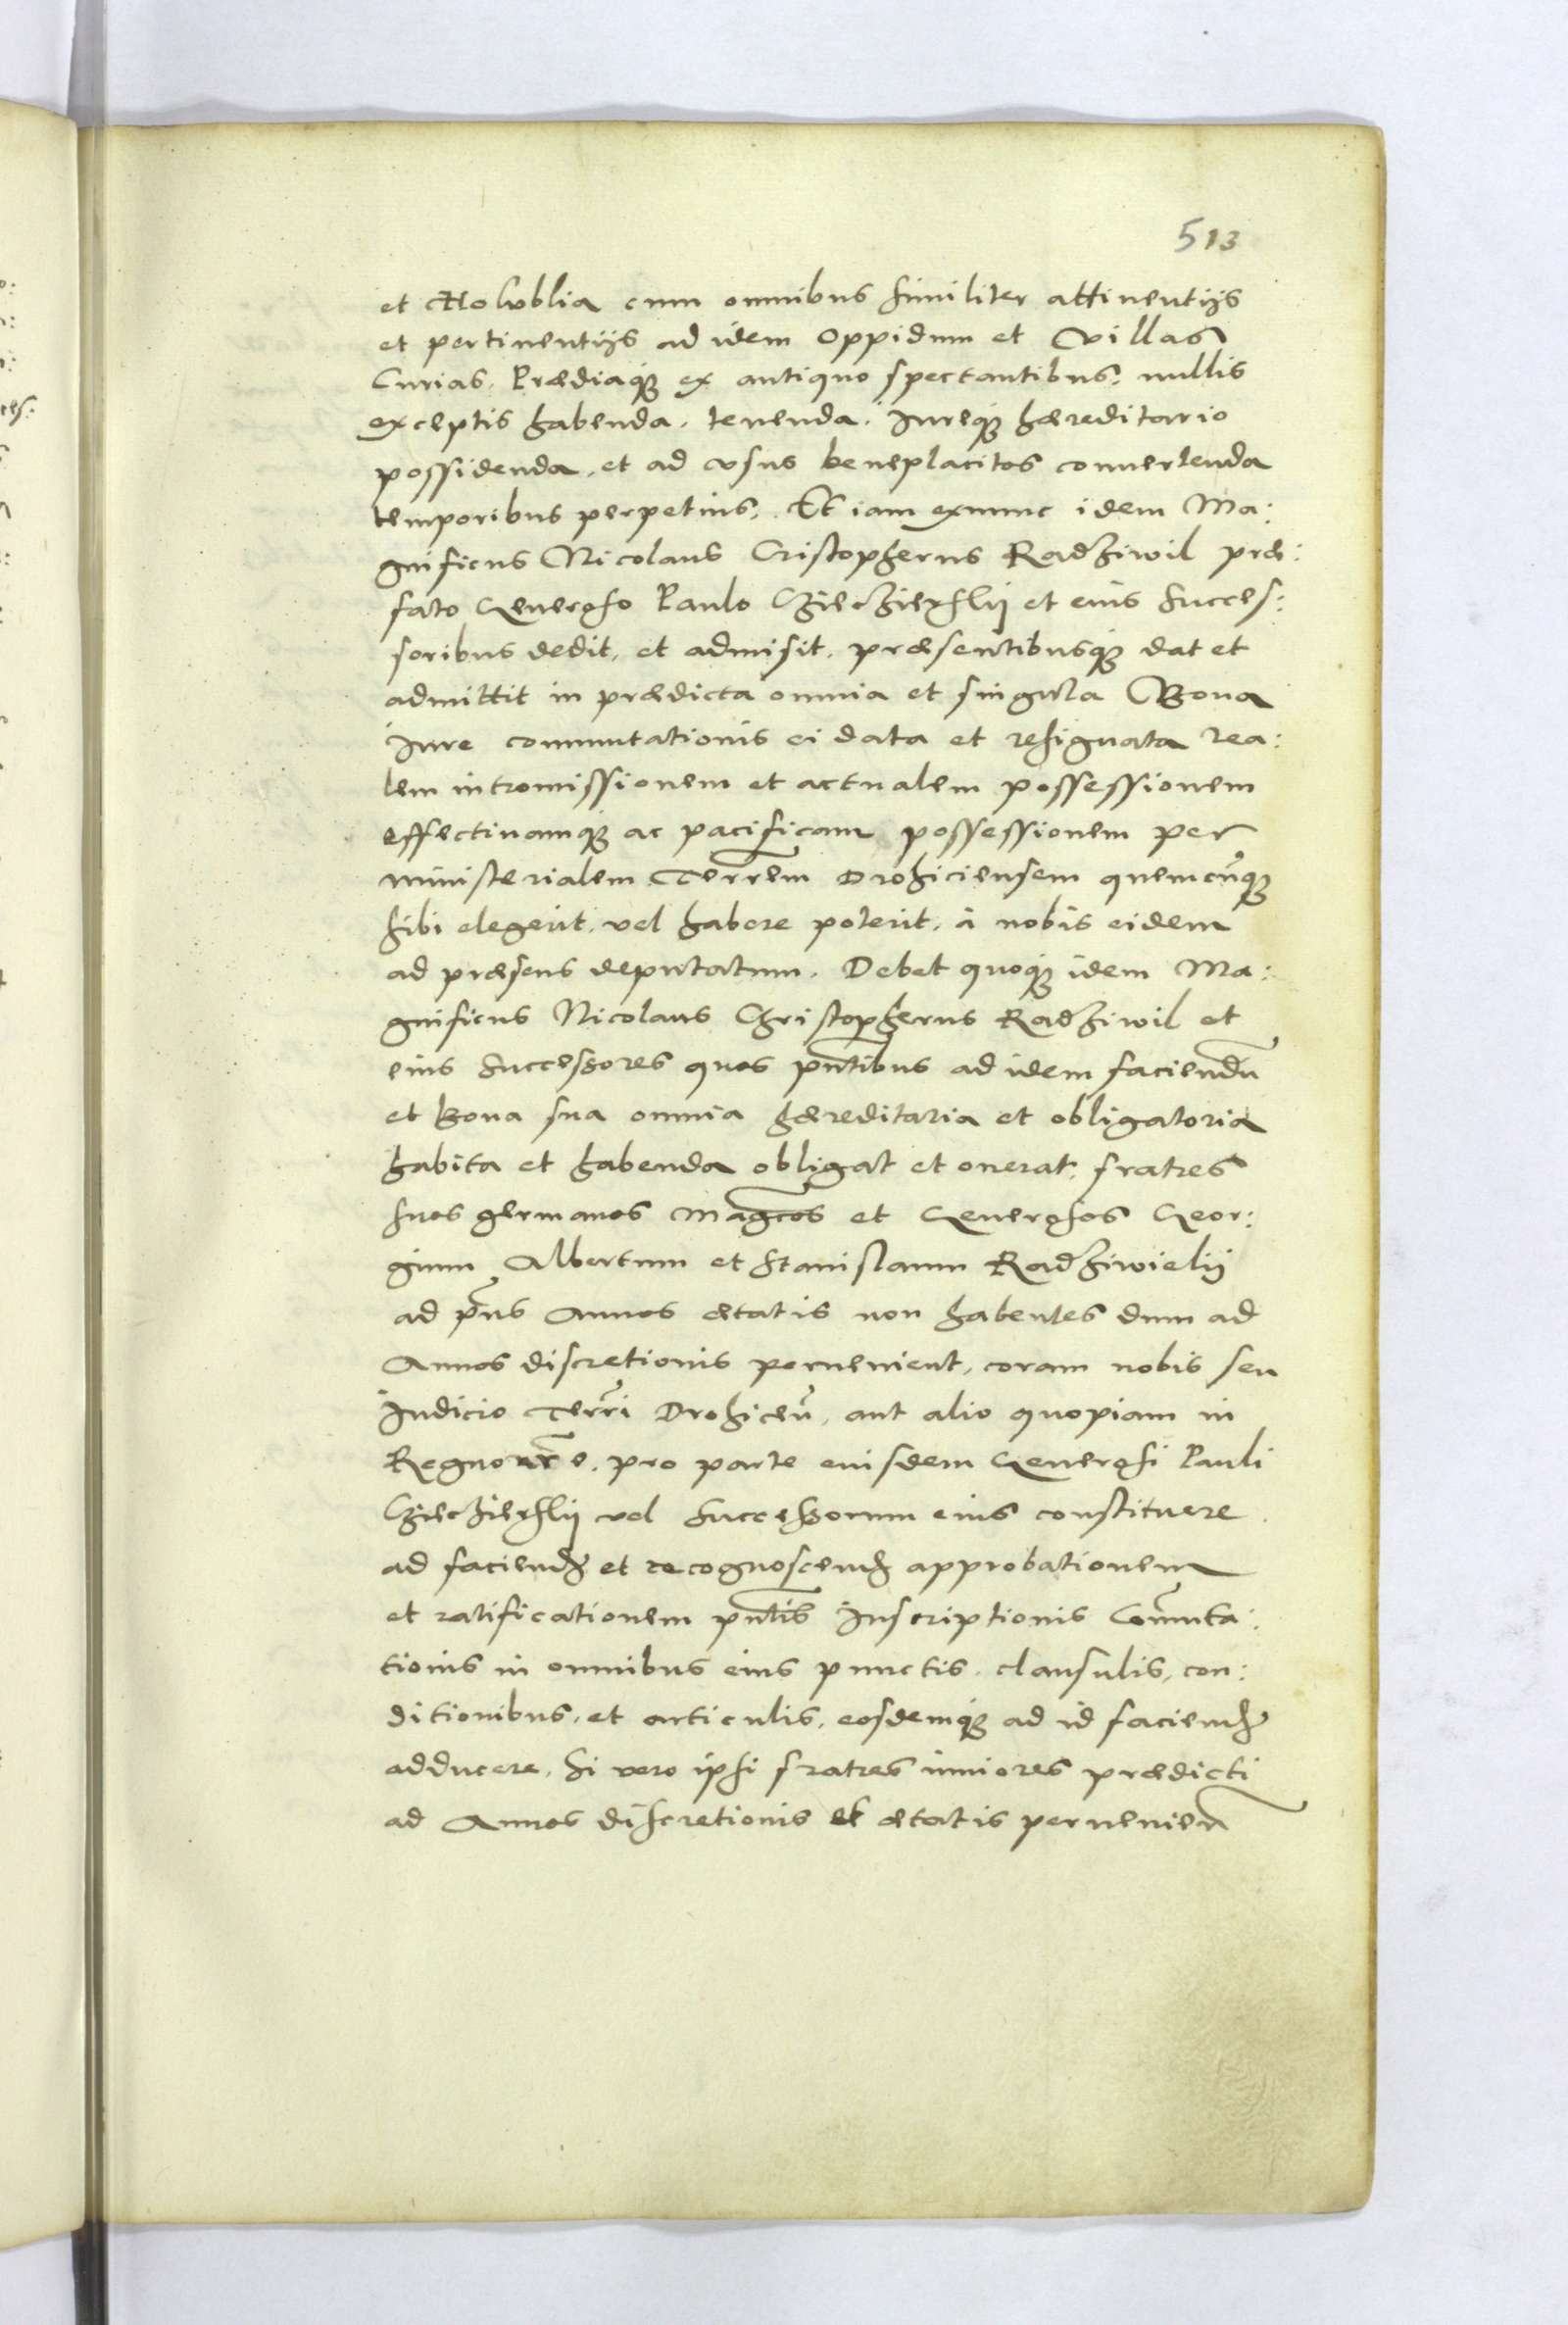 513
et Holublia cum omnibus similiter attinentijs
et pertinentijs ad idem Oppidum et Villas
Curias, Prædiaque ex antiquo spectantibus, nullis
exceptis habenda, tenenda, Iureque hæreditario
possidenda, et ad vsus beneplacitos conuertenda
temporibus perpetuis. Et iam exnunc idem Ma:
gnificus Nicolaus Cristopherus Radziwil præ:
fato Generoso Paulo Cziecziersky et eius succes:
soribus dedit, et admisit, præsentibusque dat et
admittit in prædicta omnia et singula Bona
Iure commutationis ei data et resignata rea:
lem intromissionem et actualem possessionem
effectiuamque ac pacificam possessionem per
ministerialem Terrem̃ Drohiciensem quemcũque
sibi elegerit, vel habere poterit, à nobis eidem
ad præsens deputatum. Debet quoque idem Ma:
gnificus Nicolaus Christopherus Radziwil et
eius successores quos pñtibus ad idem faciendũ
et Bona sua omnia hæreditaria et obligatoria
habita et habenda obligat et onerat, fratres
suos germanos Mag̃cos et Generosos Geor:
gium Albertum et Stanislaum Radziwiely
ad p̃ns Annos ætatis non habentes dum ad
Annos discretionis peruenient, coram nobis seu
Iudicio Terr̃i Drohiceñ, aut alio quopiam in
Regno nr̃o, pro parte eiusdem Generosi Pauli
Cziecziersky vel successorum eius constituere
ad faciend̃ et recognoscend̃ approbationem
et ratificationem pñtis Inscriptionis Com̃uta:
tionis in omnibus eius punctis, clausulis, con:
ditionibus, et articulis, eosdemque ad id faciend̃
adducere, Si vero ipsi fratres iuniores prædicti
ad Annos discretionis et ætatis peruenieñ